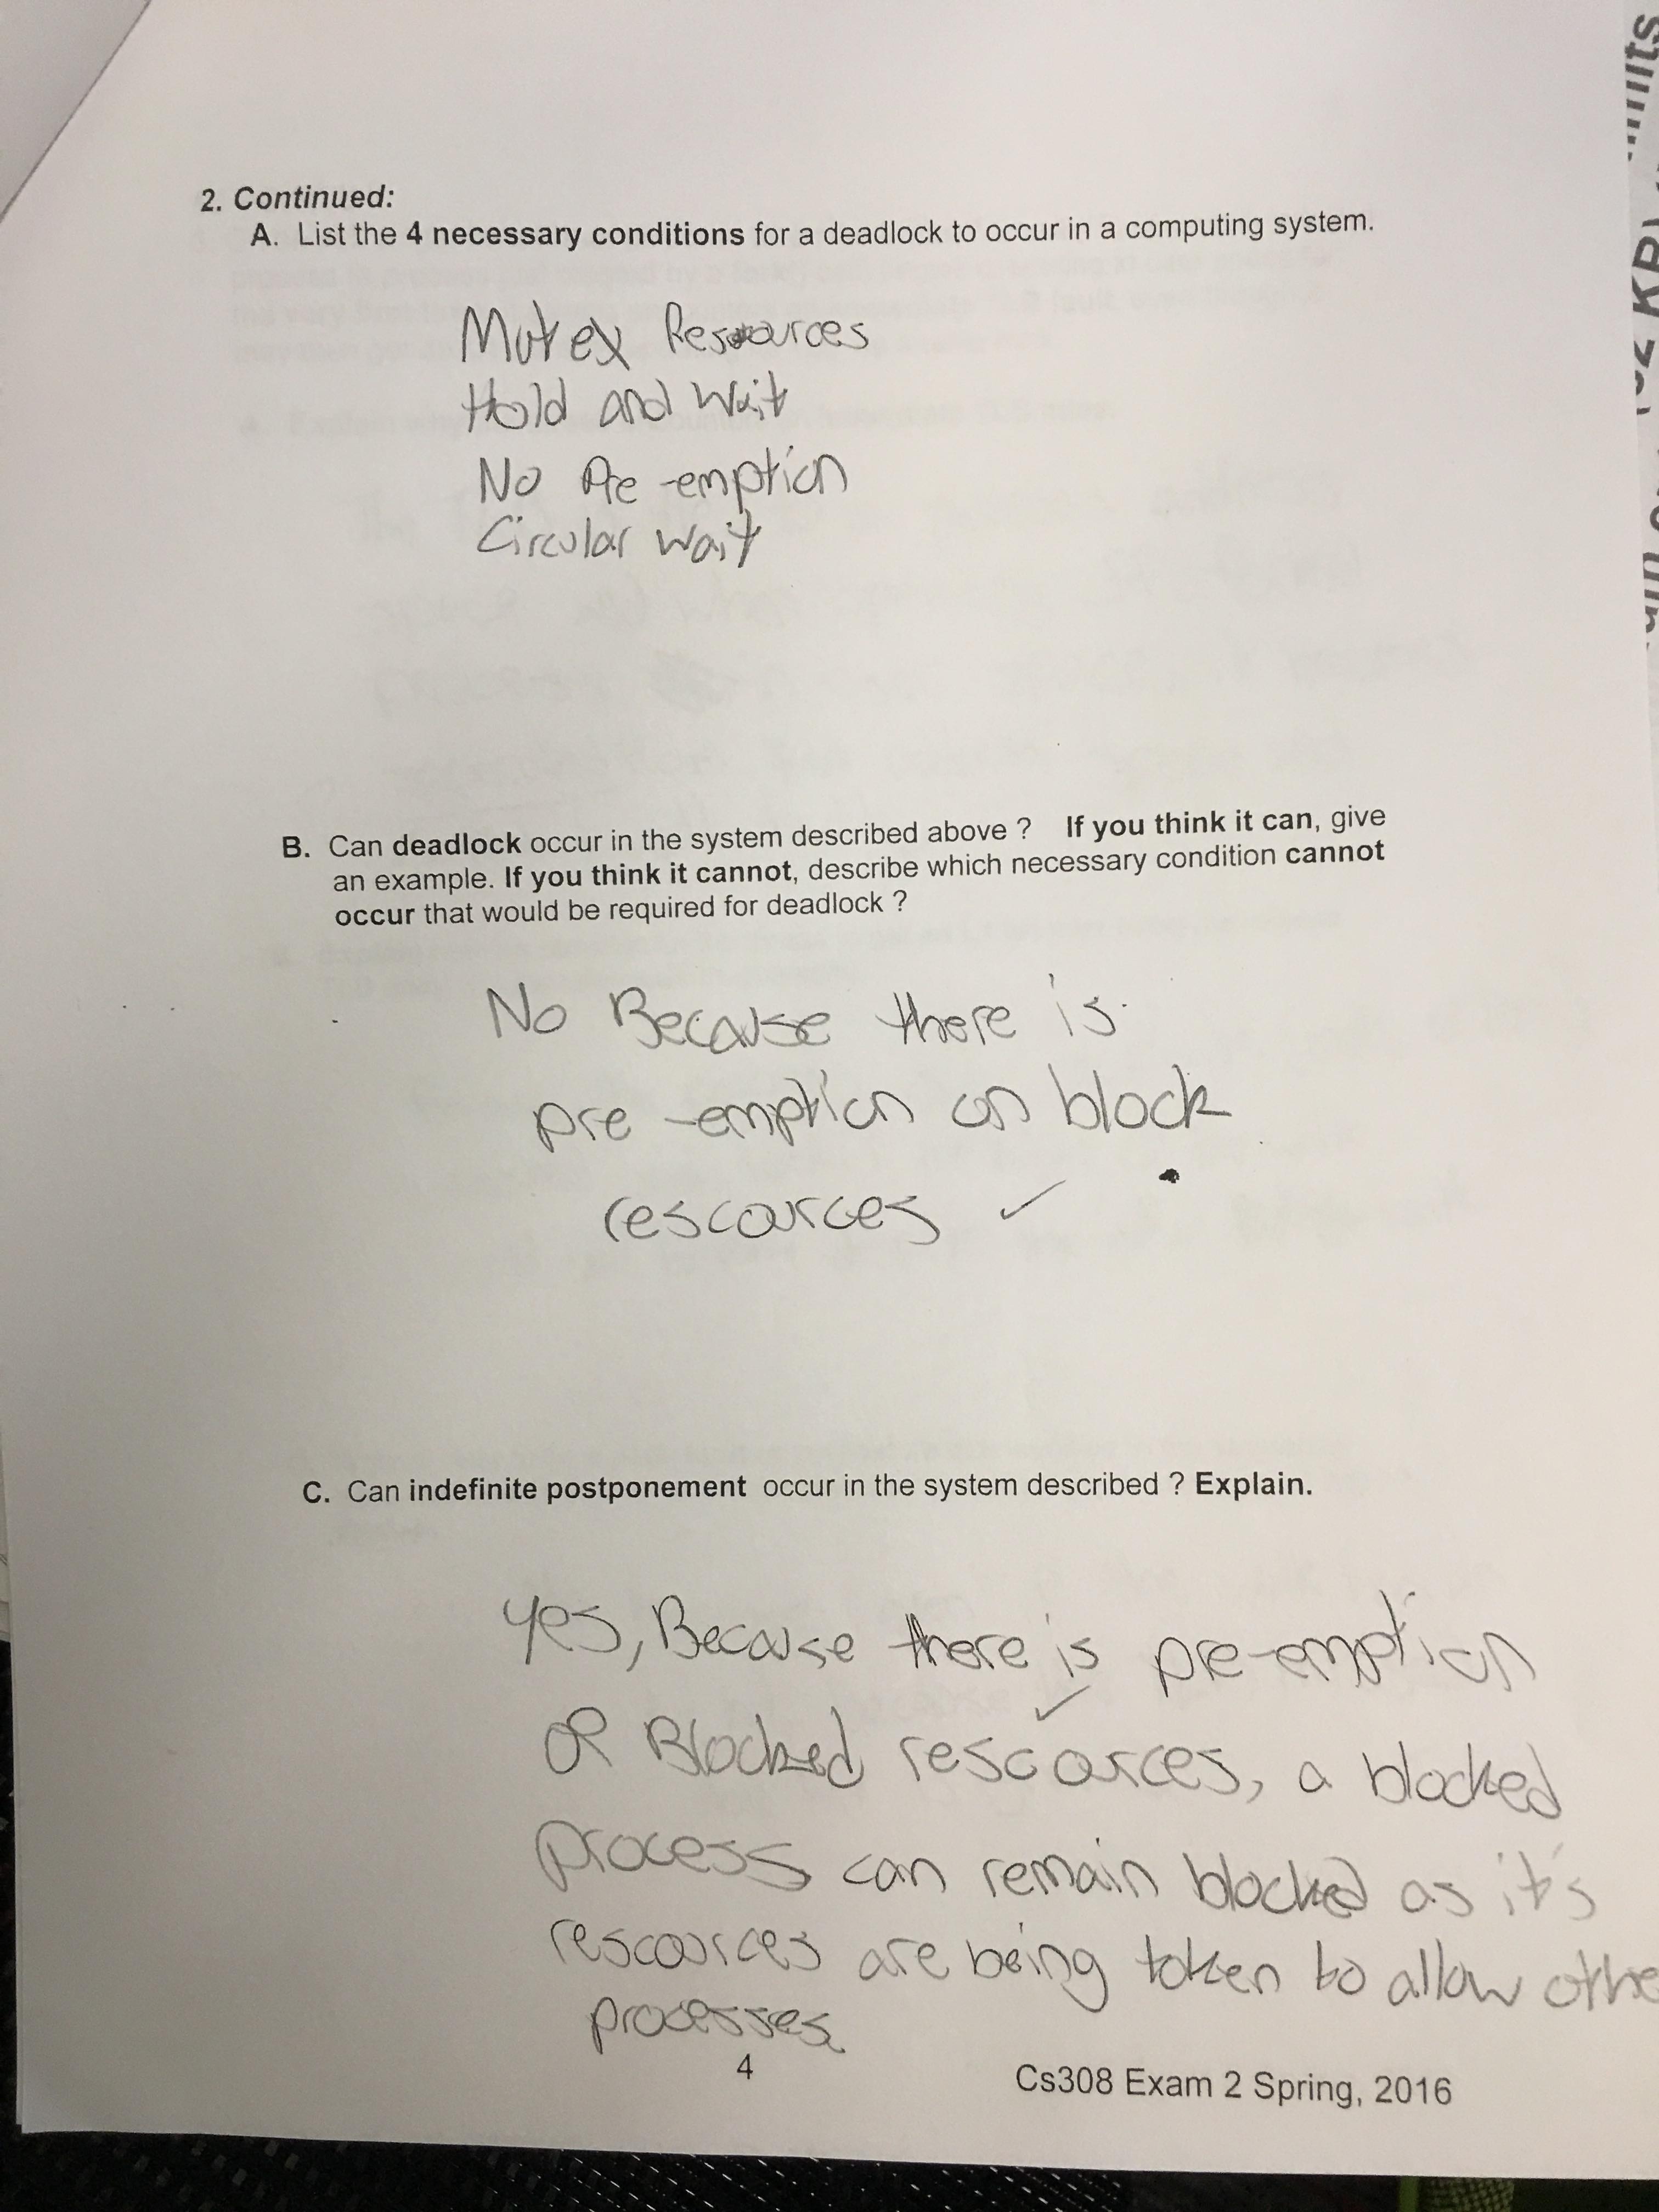 2. Continued:
A. List the 4 necessary conditions for a deadlock to occur in a computing system.
Mutex Resources
Hold and Wait
No Pre-emption
Circular Wait
B. Can deadlock occur in the system described above ? If you think it can, give
an example. If you think it cannot, describe which necessary condition cannot
occur that would be required for deadlock ?
No Because there is
pre-emption on block
rescources ✓
C. Can indefinite postponement occur in the system described ? Explain.
Yes, Because there is pre-emption
✓
of Blocked rescources, a blocked
process can remain blocked as it's
rescources are being taken to allow othe
processes
4
Cs308 Exam 2 Spring, 2016